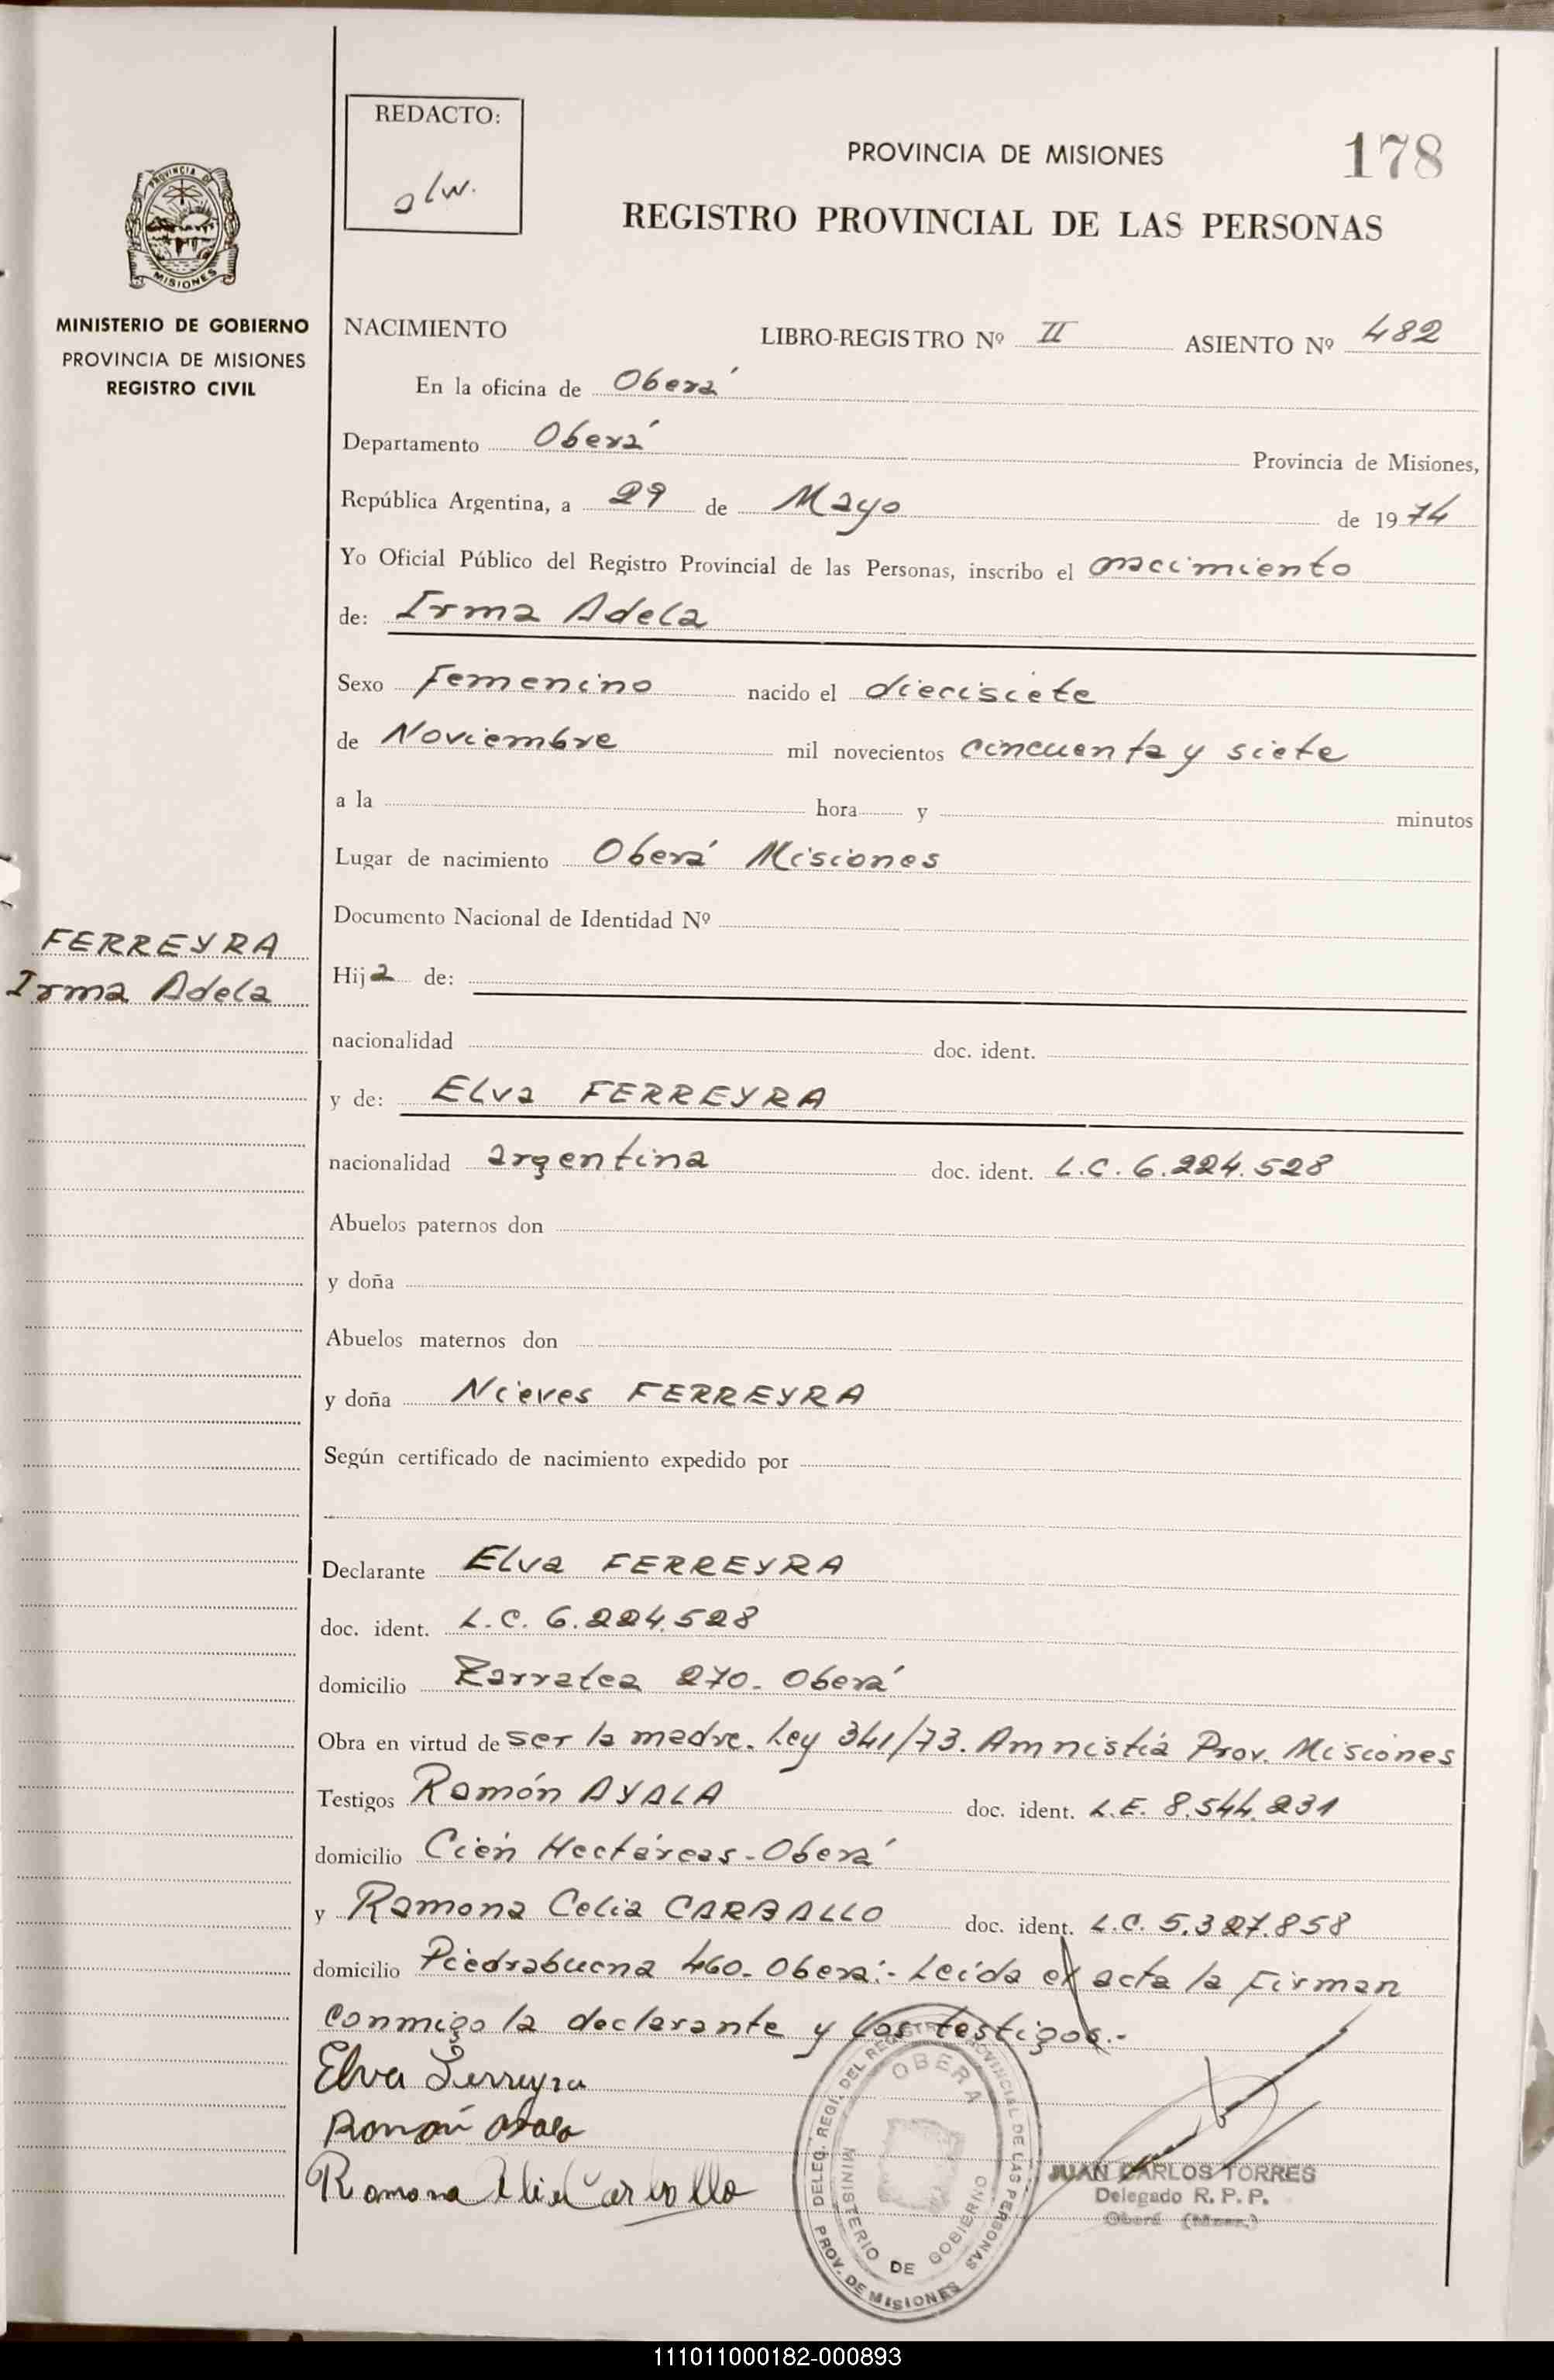 REDACTO:
olw.
PROVINCIA DE MISIONES
178
REGISTRO PROVINCIAL DE LAS PERSONAS
PROVINCIA DE
MISIONES
MINISTERIO DE GOBIERNO
PROVINCIA DE MISIONES
REGISTRO CIVIL
NACIMIENTO LIBRO-REGISTRO Nº II ASIENTO Nº 482
En la oficina de Oberá
Departamento Oberá Provincia de Misiones,
República Argentina, a 29 de Mayo de 1974
Yo Oficial Público del Registro Provincial de las Personas, inscribo el nacimiento
de: Irma Adela
Sexo Femenino nacido el diecisiete
de Noviembre mil novecientos cincuenta y siete
a la hora y minutos
Lugar de nacimiento Oberá Misiones
Documento Nacional de Identidad Nº
FERREYRA
Irma Adela
Hija de:
nacionalidad doc. ident.
y de: Elva FERREYRA
nacionalidad argentina doc. ident. L.C. 6.224.528
Abuelos paternos don
y doña
Abuelos maternos don
y doña Nieves FERREYRA
Según certificado de nacimiento expedido por
Declarante Elva FERREYRA
doc. ident. L.C. 6.224.528
domicilio Zarratea 270. Oberá
Obra en virtud de ser la madre. Ley 341/73. Amnistía Prov. Misiones
Testigos Ramón AYALA doc. ident. L.E. 8.544.231
domicilio Cién Hectáreas - Oberá
y Ramona Celia CARBALLO doc. ident. L.C. 5.327.858
domicilio Piedrabuena 460. Oberá:- Leída el acta la Firman
conmigo la declarante y los testigos.-
Elva Ferreyra
Ramón Ayala
Ramona Celia Carballo
DELEG. REGI. DEL REGISTRO PROVINCIAL DE LAS PERSONAS
OBERA
MINISTERIO DE GOBIERNO
PROV. DE MISIONES
JUAN CARLOS TORRES
Delegado R. P. P.
Oberá (Mnes.)
111011000182-000893